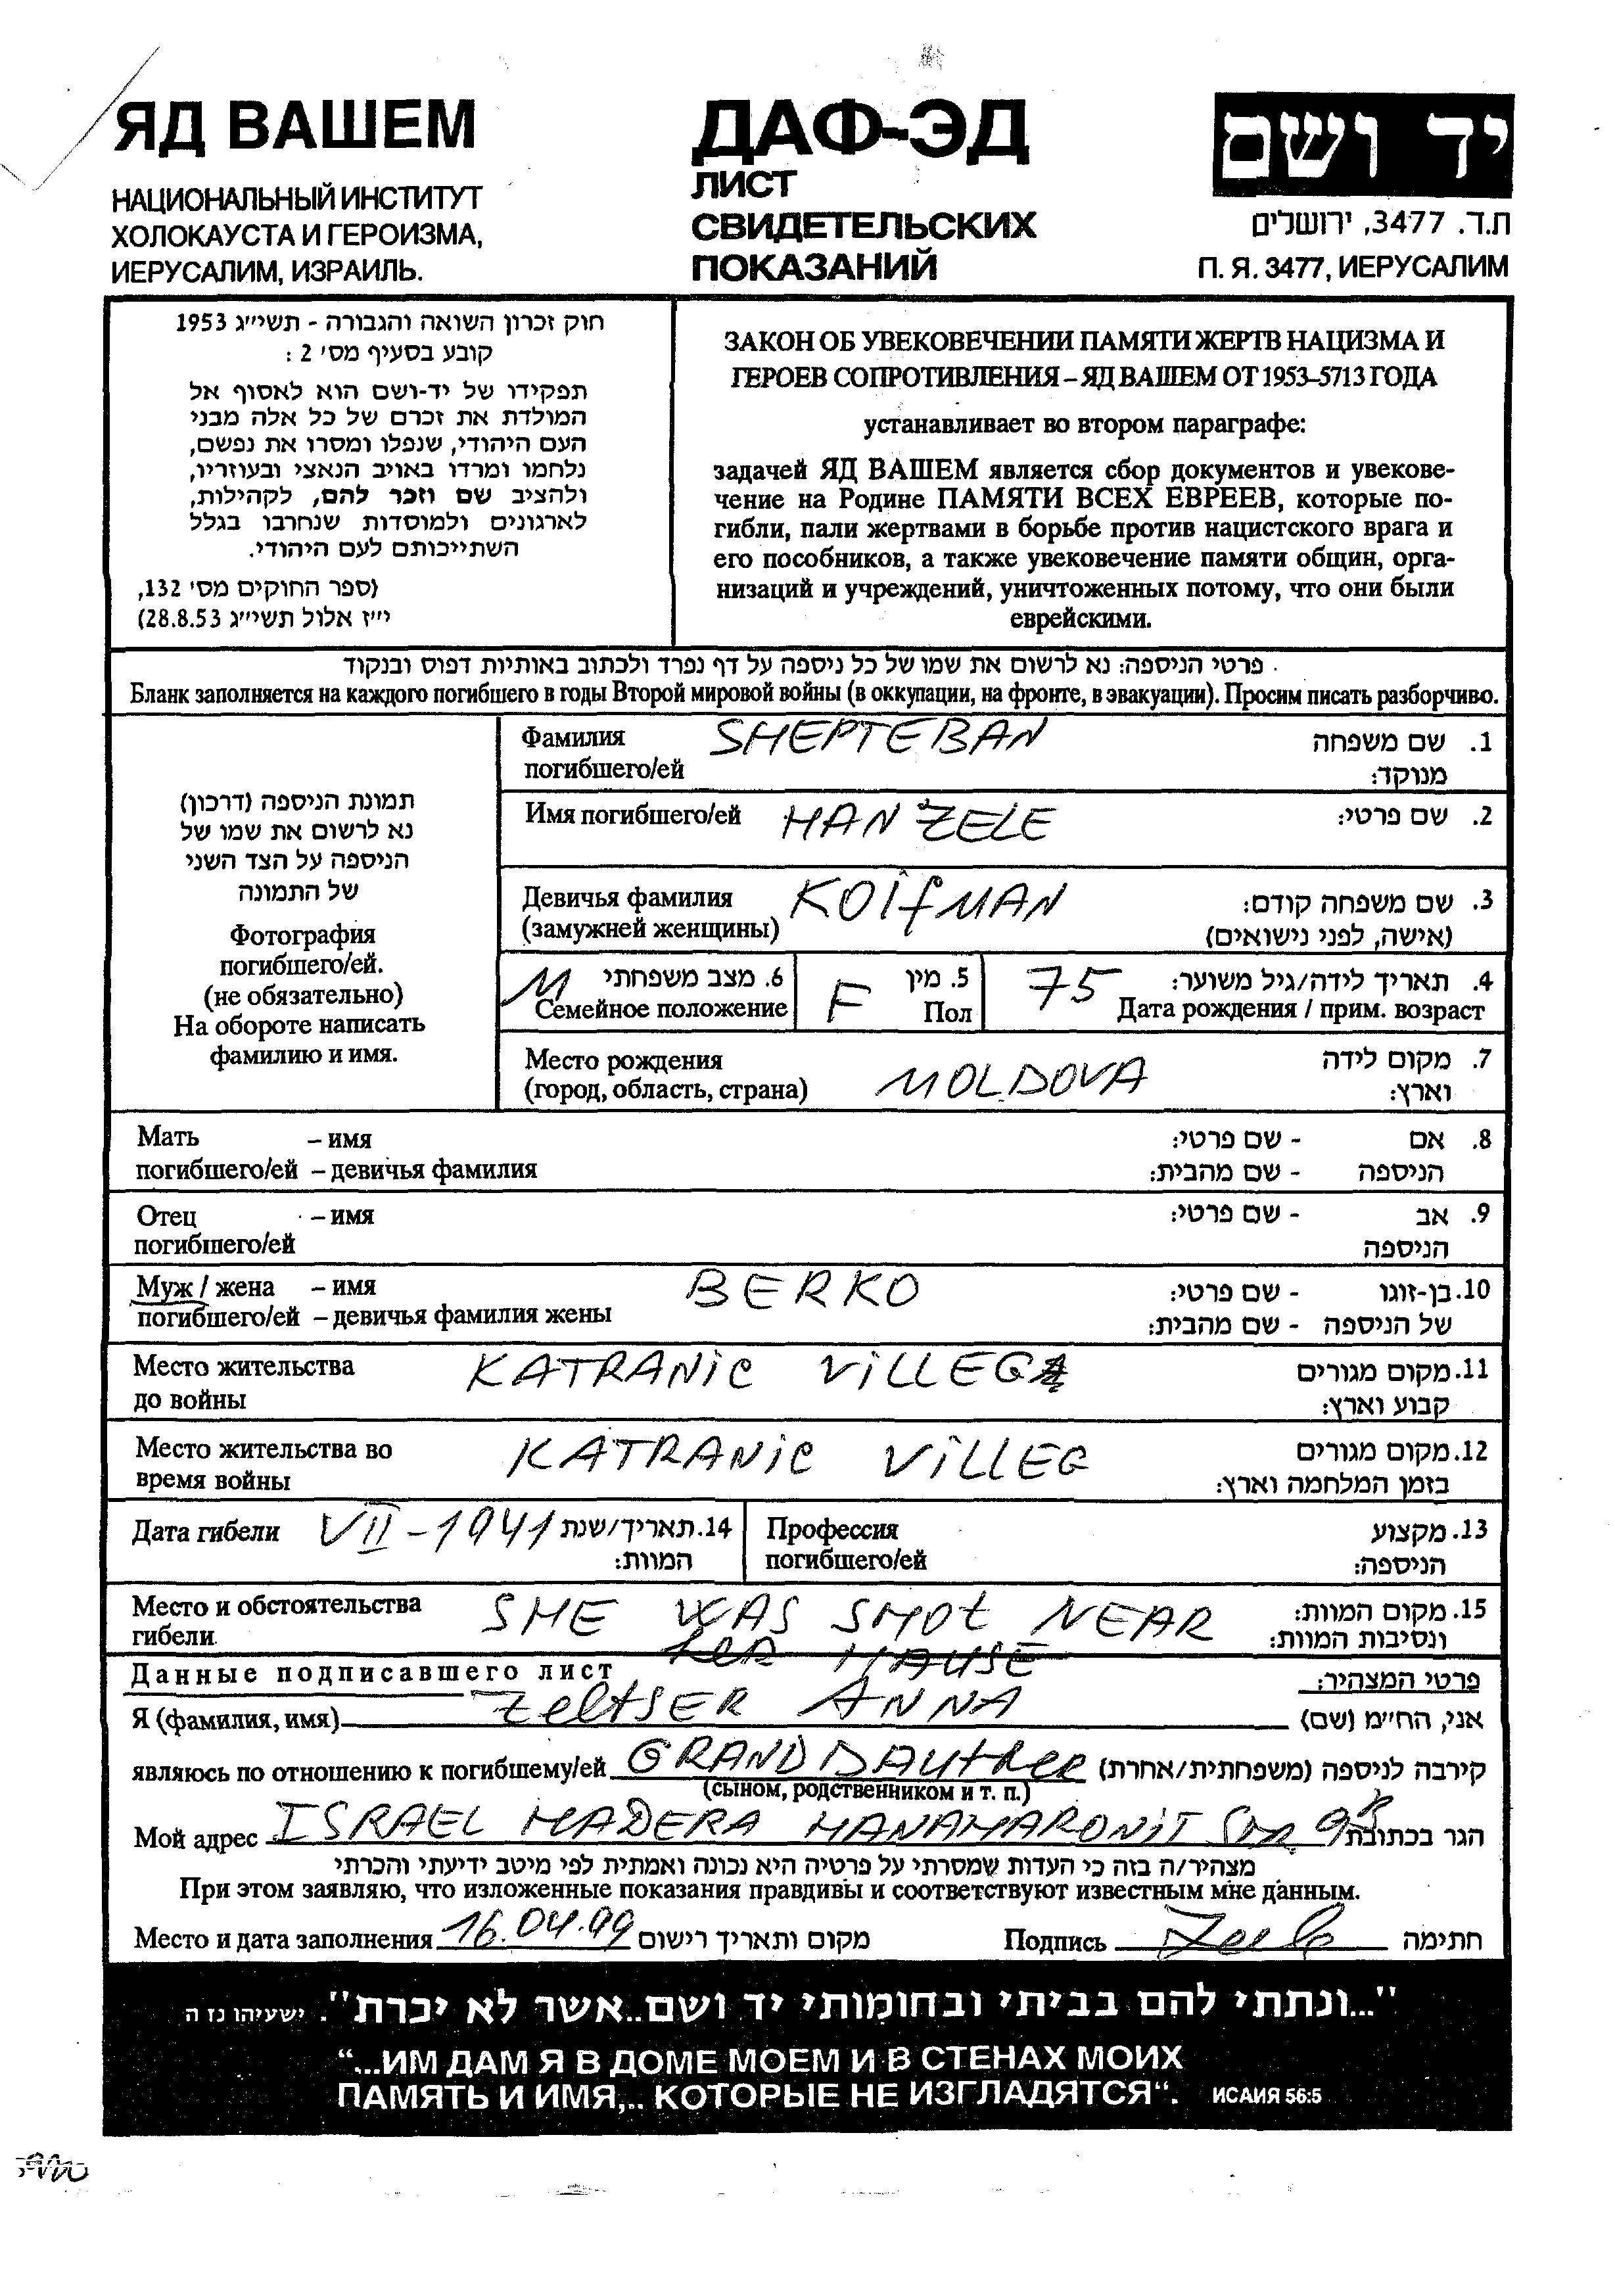 ЯД ВАШЕМ
НАЦИОНАЛЬНЫЙ ИНСТИТУТ
ХОЛОКАУСТА И ГЕРОИЗМА,
ИЕРУСАЛИМ, ИЗРАИЛЬ.
ДАФ-ЭД
ЛИСТ
СВИДЕТЕЛЬСКИХ
ПОКАЗАНИЙ
יד ושם
ת.ד. 3477, ירושלים
П. Я. 3477, ИЕРУСАЛИМ
חוק זכרון השואה והגבורה - תשי״ג 1953
קובע בסעיף מס׳ 2 :
תפקידו של יד-ושם הוא לאסוף אל
המולדת את זכרם של כל אלה מבני
העם היהודי, שנפלו ומסרו את נפשם,
נלחמו ומרדו באויב הנאצי ובעוזריו,
ולהציב שם וזכר להם, לקהילות,
לארגונים ולמוסדות שנחרבו בגלל
השתייכותם לעם היהודי.
(ספר החוקים מס׳ 132,
י״ז אלול תשי״ג 28.8.53)
ЗАКОН ОБ УВЕКОВЕЧЕНИИ ПАМЯТИ ЖЕРТВ НАЦИЗМА И
ГЕРОЕВ СОПРОТИВЛЕНИЯ – ЯД ВАШЕМ ОТ 1953–5713 ГОДА
устанавливает во втором параграфе:
задачей ЯД ВАШЕМ является сбор документов и увекове-
чение на Родине ПАМЯТИ ВСЕХ ЕВРЕЕВ, которые по-
гибли, пали жертвами в борьбе против нацистского врага и
его пособников, а также увековечение памяти общин, орга-
низаций и учреждений, уничтоженных потому, что они были
еврейскими.
פרטי הניספה: נא לרשום את שמו של כל ניספה על דף נפרד ולכתוב באותיות דפוס ובנקוד
Бланк заполняется на каждого погибшего в годы Второй мировой войны (в оккупации, на фронте, в эвакуации). Просим писать разборчиво.
תמונת הניספה (דרכון)
נא לרשום את שמו של
הניספה על הצד השני
של התמונה
Фотография
погибшего/ей.
(не обязательно)
На обороте написать
фамилию и имя.
Фамилия SHEPTEBAN 1. שם משפחה
погибшего/ей מנוקד:
Имя погибшего/ей HANZELE 2. שם פרטי:
Девичья фамилия KOIfMAN 3. שם משפחה קודם:
(замужней женщины) (אישה, לפני נישואים)
M 6. מצב משפחתי F 5. מין 75 4. תאריך לידה/גיל משוער:
Семейное положение Пол Дата рождения / прим. возраст
Место рождения 7. מקום לידה
(город, область, страна) MOLDOVA וארץ:
Мать – имя 8. אם - שם פרטי:
погибшего/ей – девичья фамилия הניספה - שם מהבית:
Отец – имя 9. אב - שם פרטי:
погибшего/ей הניספה
Муж / жена – имя BERKO 10. בן-זוגו - שם פרטי:
погибшего/ей – девичья фамилия жены של הניספה - שם מהבית:
Место жительства KATRANIC VILLEG 11. מקום מגורים
до войны קבוע וארץ:
Место жительства во KATRANIC VILLEG 12. מקום מגורים
время войны בזמן המלחמה וארץ:
Дата гибели VII-1941 14. תאריך/שנת Профессия 13. מקצוע
המוות: погибшего/ей הניספה:
Место и обстоятельства SHE WAS SHOt NEAR 15. מקום המוות:
гибели. heR HAUSE ונסיבות המוות:
Данные подписавшего лист פרטי המצהיר:
Я (фамилия, имя) ZeltSER ANNA אני, הח״מ (שם)
являюсь по отношению к погибшему/ей GRANDDAUtheR קירבה לניספה (משפחתית/אחרת)
(сыном, родственником и т. п.)
Мой адрес ISRAEL HADERA HANAHARONIT הגר בכתובת
מצהיר/ה בזה כי העדות שמסרתי על פרטיה היא נכונה ואמתית לפי מיטב ידיעתי והכרתי
При этом заявляю, что изложенные показания правдивы и соответствуют известным мне данным.
Место и дата заполнения 16.04.99 מקום ותאריך רישום Подпись חתימה
"...ונתתי להם בביתי ובחומותי יד ושם..אשר לא יכרת". ישעיהו נז ה
“...ИМ ДАМ Я В ДОМЕ МОЕМ И В СТЕНАХ МОИХ
ПАМЯТЬ И ИМЯ,.. КОТОРЫЕ НЕ ИЗГЛАДЯТСЯ“. ИСАИЯ 56:5